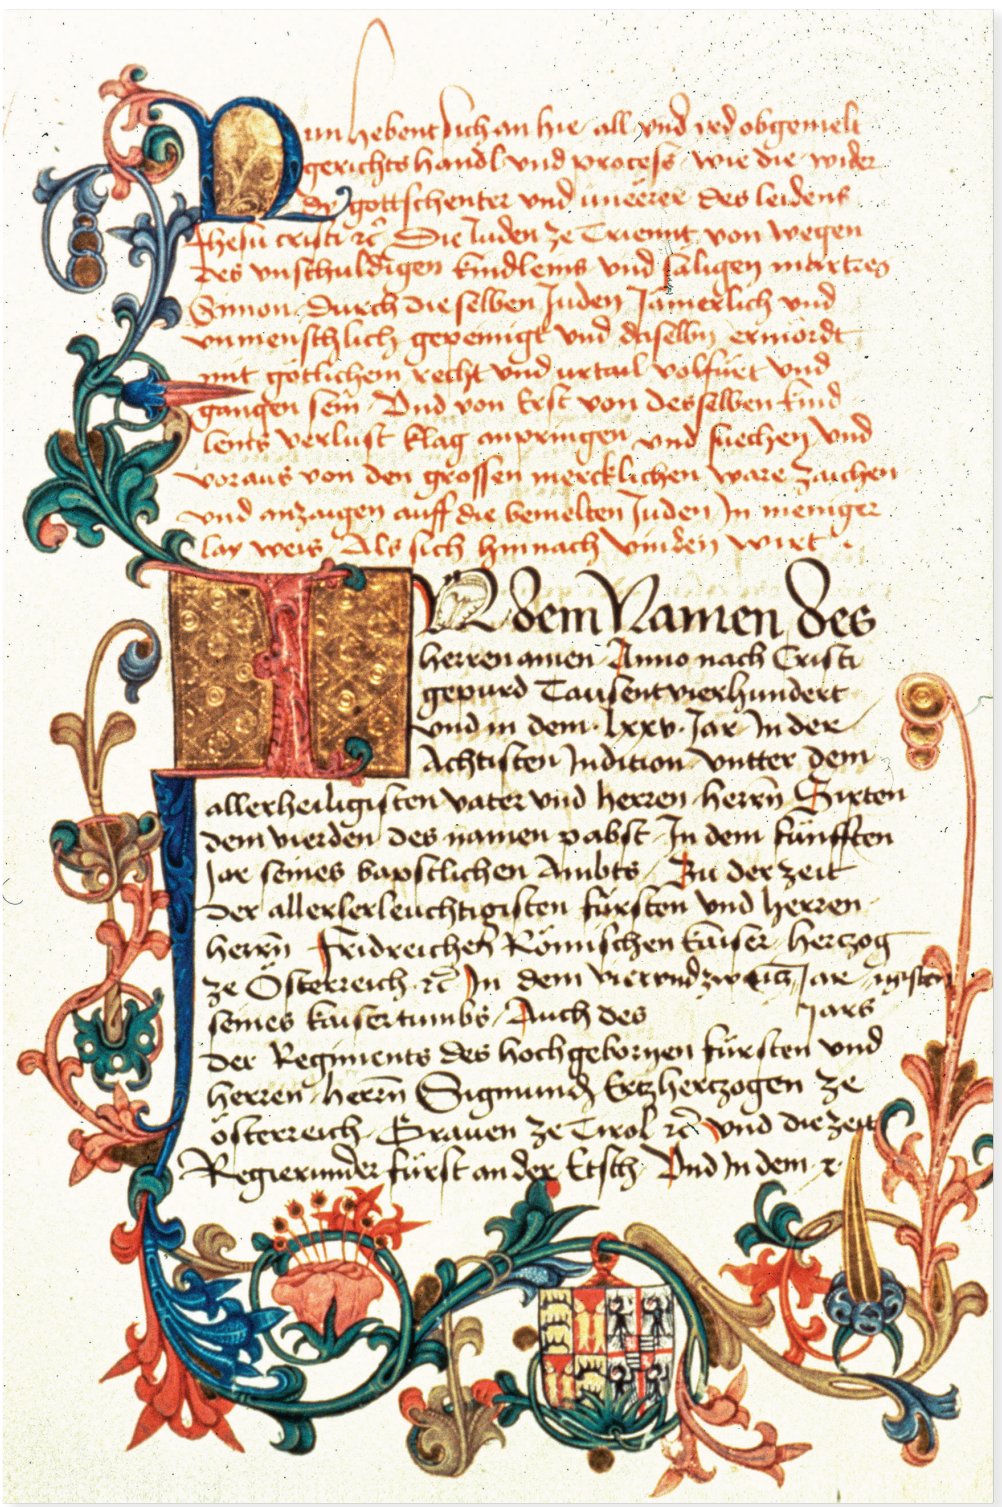 Nun hebent sich an hie all vnd yed obgemelt
gerichts handl vnd process wie die wider
dy gottschenter vnd vneerer des leidens
Jhesu cristi rc Die Juden ze Triennt von wegen
des vnschuldigen kindleins vnd saligen martres
Simon durch die selben Juden Jamerlich vnd
vnmenschlich gepeinigt vnd daselbn ermordt
mit gotlichem recht vnd vrtail volfürt vnd
gangen sein Vnd von Erst von desselben kind
leins verlust klag anpringen vnd suechen vnd
voraus von den grossen mercklichen ware zaichen
vnd anzaigen auff die bemelten Juden In meniger
lay weis Als sich hinnach vinden wirt
IN dem Namen des
herren amen Anno nach Cristi
gepurd Tausent vierhundert
vnd in dem lxxv Jar In der
Achtisten Indition vntter dem
allerheiligisten vater vnd herren herrn Sixten
dem vierden des namen pabst In dem fünfften
Jar seines bapstlichen Ambts Zu der zeit
der allerlerleuchtigisten fürsten vnd herren
herrn Fridreichen Römischen kaiser hertzog
ze Österreich rc In dem vierundzwenzig Jar
seines kaisertumbs Auch des Jars
der Regiments des hochgebornen fürsten vnd
herren herrn Sigmund Ertzhertzogen ze
österreich Grauen ze Tirol rc vnd die zeit
Regierunder fürst an der Etsch Vnd In dem